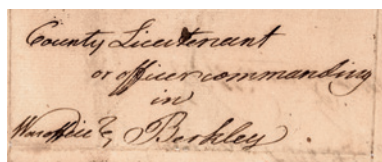 County Lieutenant
or officer commanding
in
War office Berkley